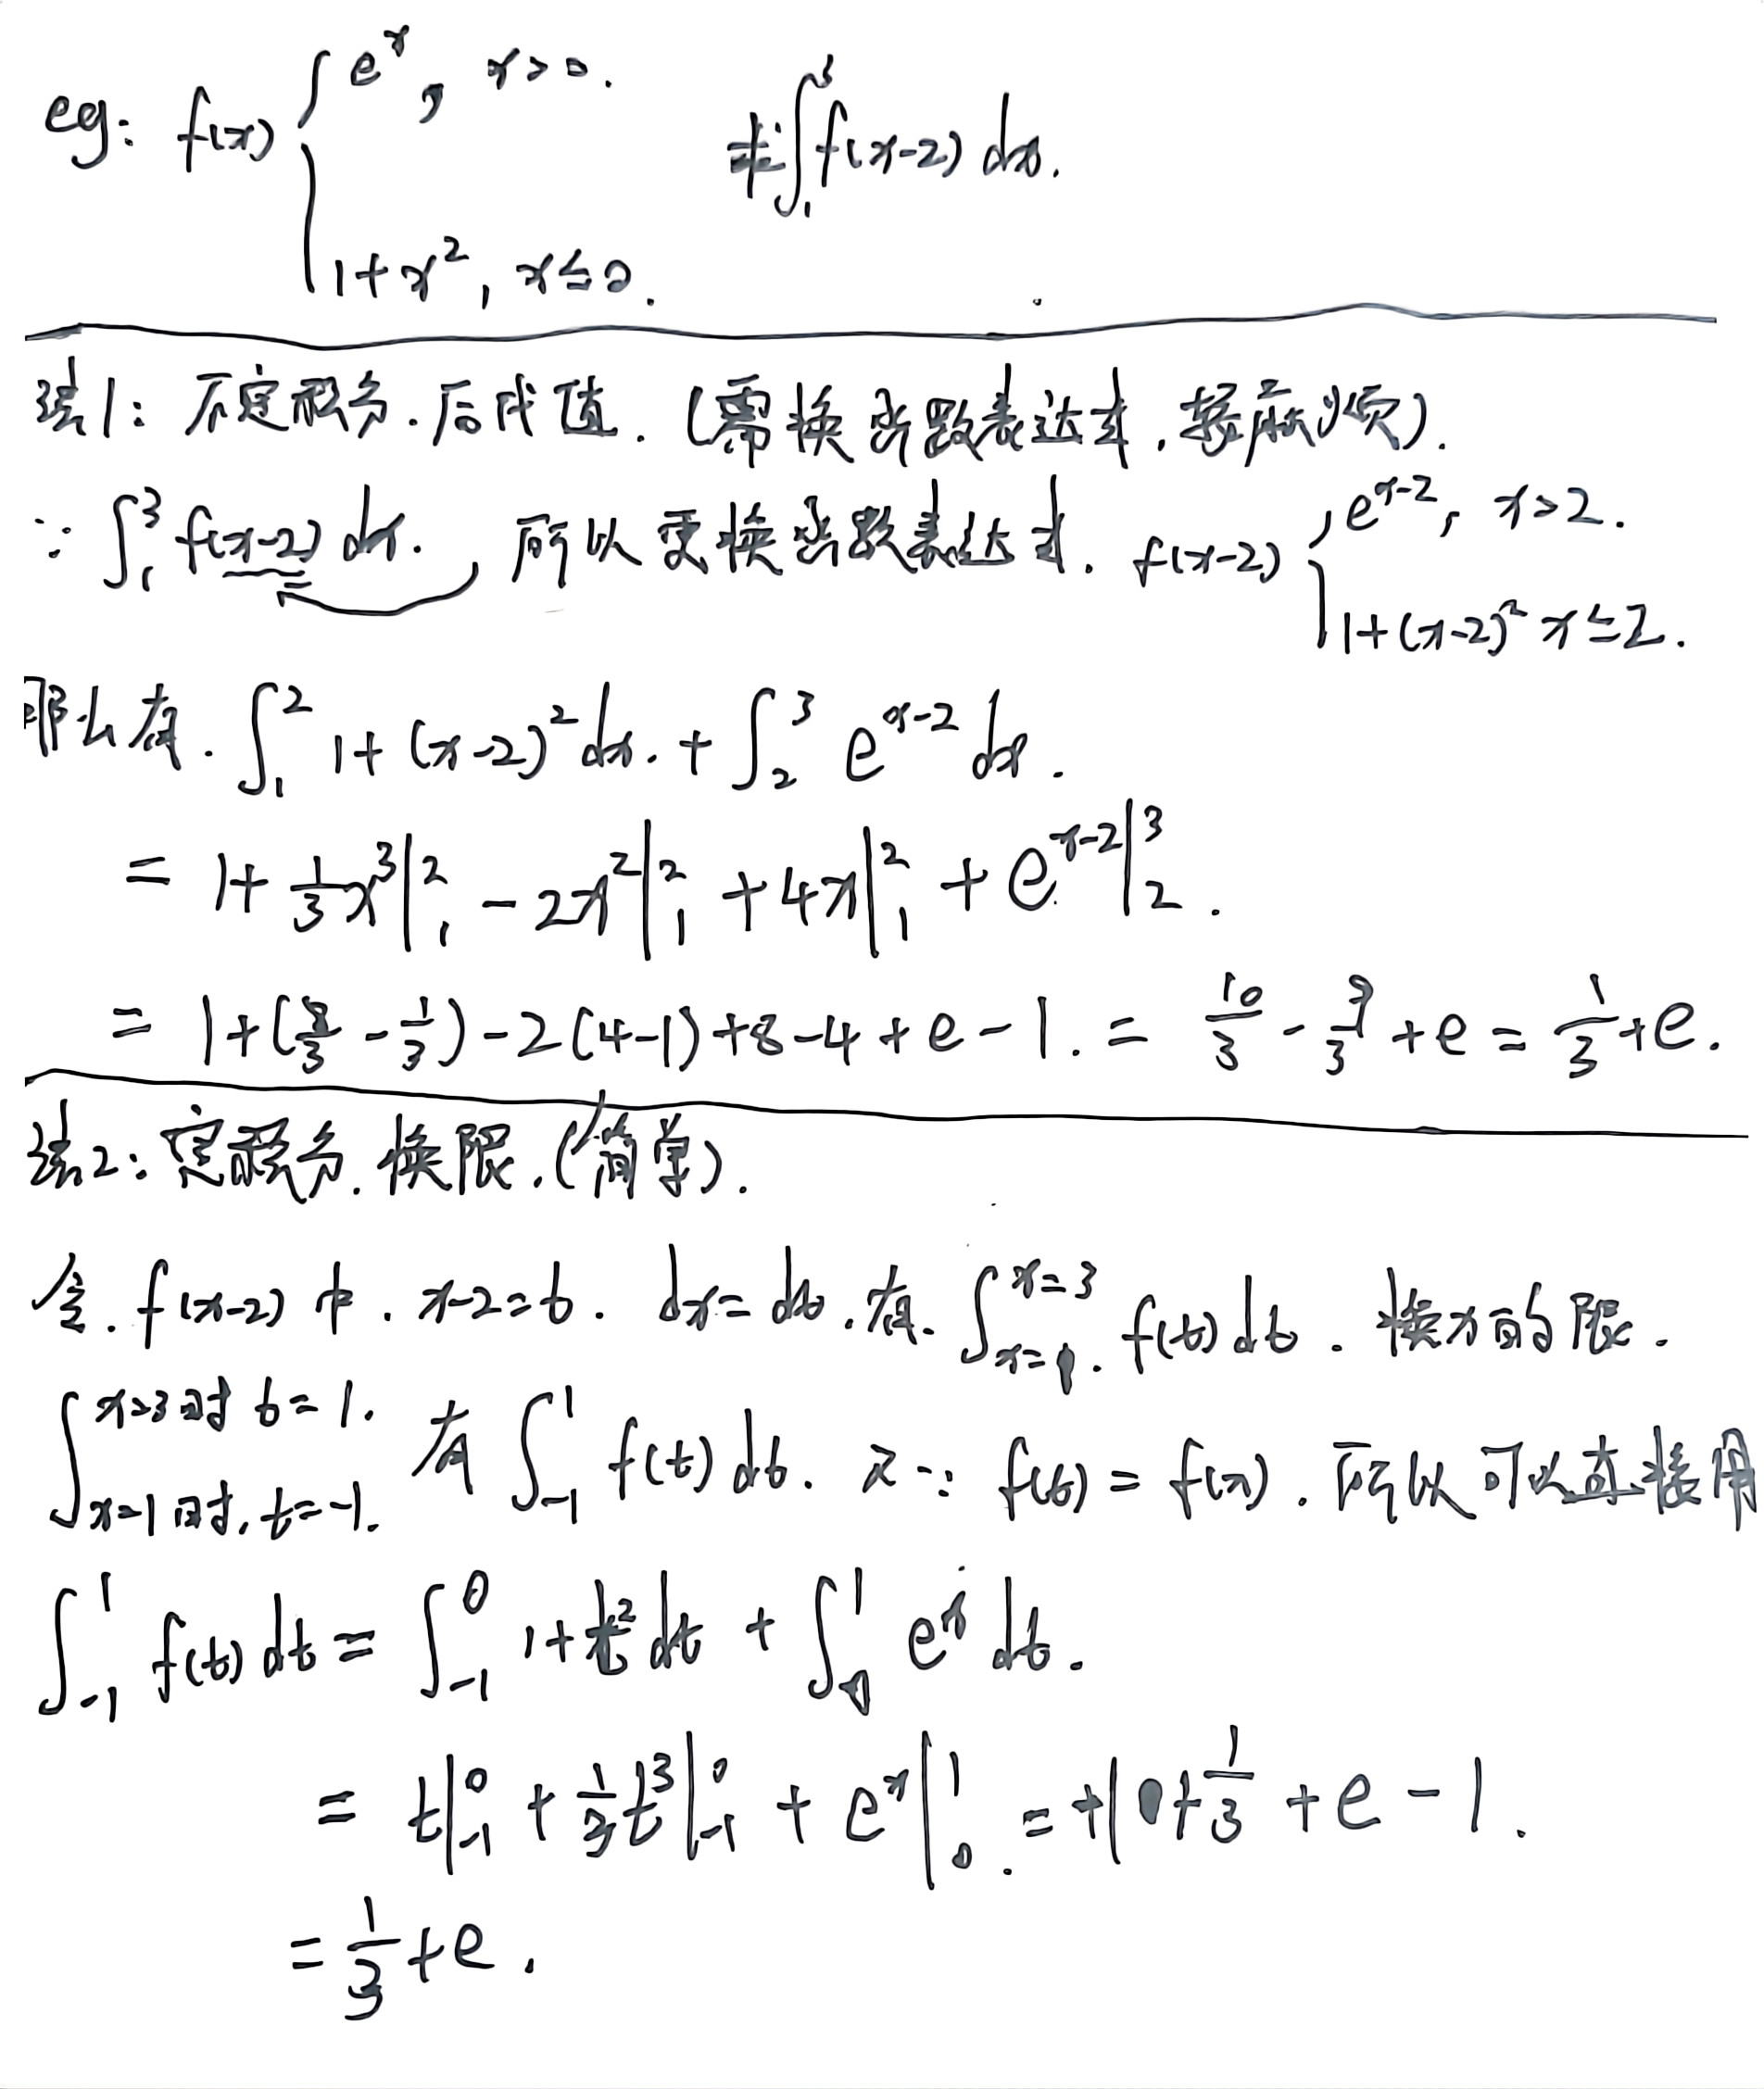 eg: f(x) { e^x, x>0. 求∫₁³ f(x-2) dx.
1+x², x≤0.
法1: 不定积分.后代值. (需换函数表达式,较麻烦).
∵ ∫₁³ f(x-2) dx. 所以更换函数表达式. f(x-2) { e^(x-2), x>2.
1+(x-2)² x≤2.
那么有. ∫₁² 1+(x-2)² dx. + ∫₂³ e^(x-2) dx.
= 1+ 1/3 x³|₁² - 2x²|₁² + 4x|₁² + e^(x-2)|₂³.
= 1+(8/3 - 1/3) -2(4-1)+8-4+e-1. = 10/3 - 9/3 +e = 1/3 +e.
法2: 定积分.换限.(简单).
令. f(x-2) 中. x-2=t. dx=dt. 有. ∫_{x=1}^{x=3} f(t) dt. 换为t的限.
∫ x=3时 t=1. 有 ∫₋₁¹ f(t) dt. 又∵ f(t) = f(x). 所以可以直接用
x=1时, t=-1.
∫₋₁¹ f(t) dt = ∫₋₁⁰ 1+t² dt + ∫₀¹ e^x dt.
= t|₋₁⁰ + 1/3 t³|₋₁⁰ + e^x|₀¹. = +1 + 1/3 + e - 1.
= 1/3 +e.